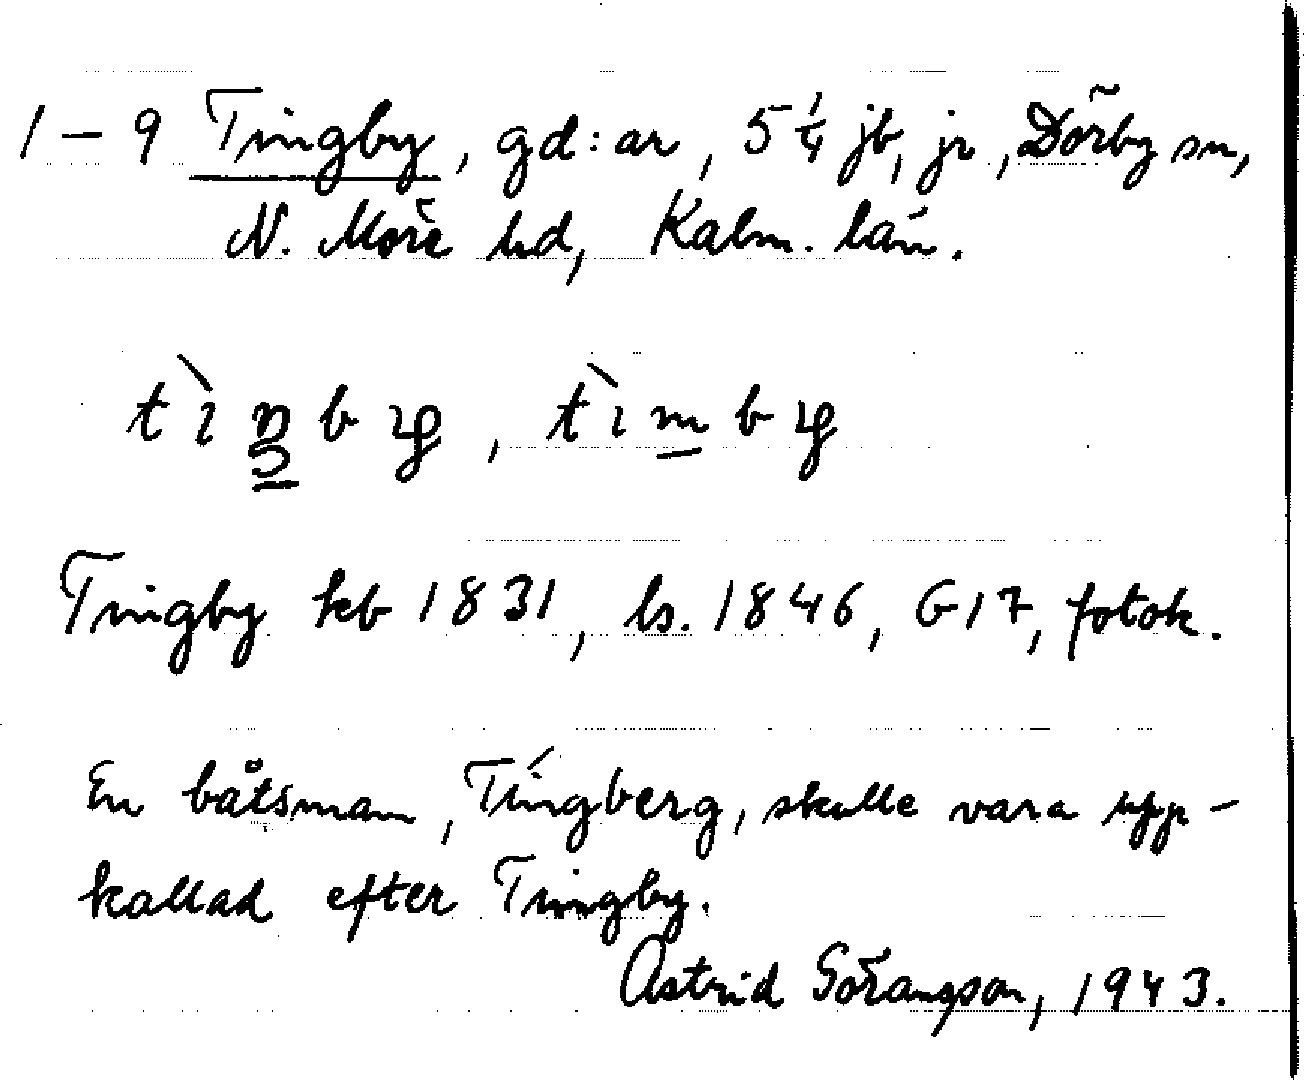 1 – 9 Tingby, gd:ar, 5 1/4 jb, jr, Dörby sn,
N. Möre hd, Kalm. län.
tìŋby, tìmby
Tingby kb 1831, ls. 1846, G17, fotok.
En båtsman, Tingberg, skulle vara upp-
kallad efter Tingby.
Astrid Görangson, 1943.